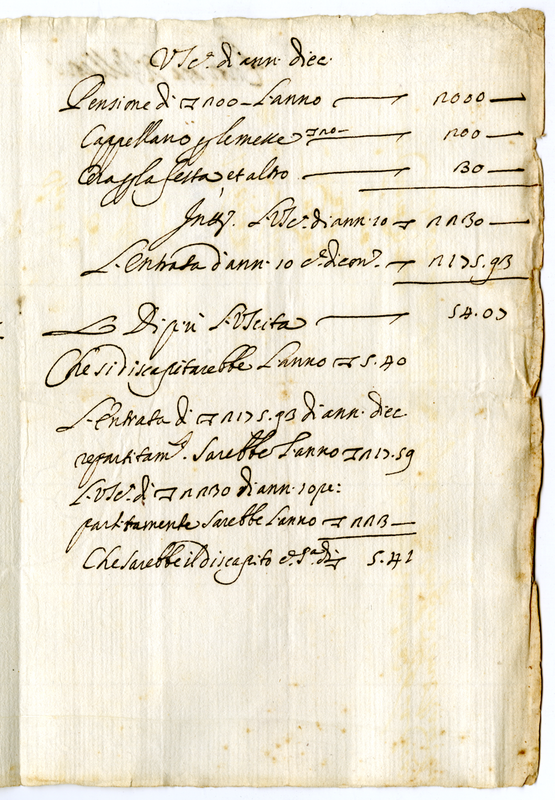 Uscᵃ. di ann. diec.
Pensione di ▽ 200 — L'anno — 2000 —
Cappellano p le messe ▽ 20 — — 200 —
Cera p la festa et altro — 30 —
L'Uscᵃ. di ann. 10 ▽ 2230 —
L'Entrata d'ann. 10 ▽ 2175.93
Di più L'Uscita — 54.07
Che si discapitarebbe L'anno ▽ 5.40
L'Entrata di ▽ 2175.93 di ann. diec.
repartitamᵗᵉ. sarebbe L'anno ▽ 217.59
L'Uscᵃ. di ▽ 2230 di ann. 10 re:
partitamente sarebbe L'anno ▽ 223 —
Che sarebbe il discapito di ▽ 5.41